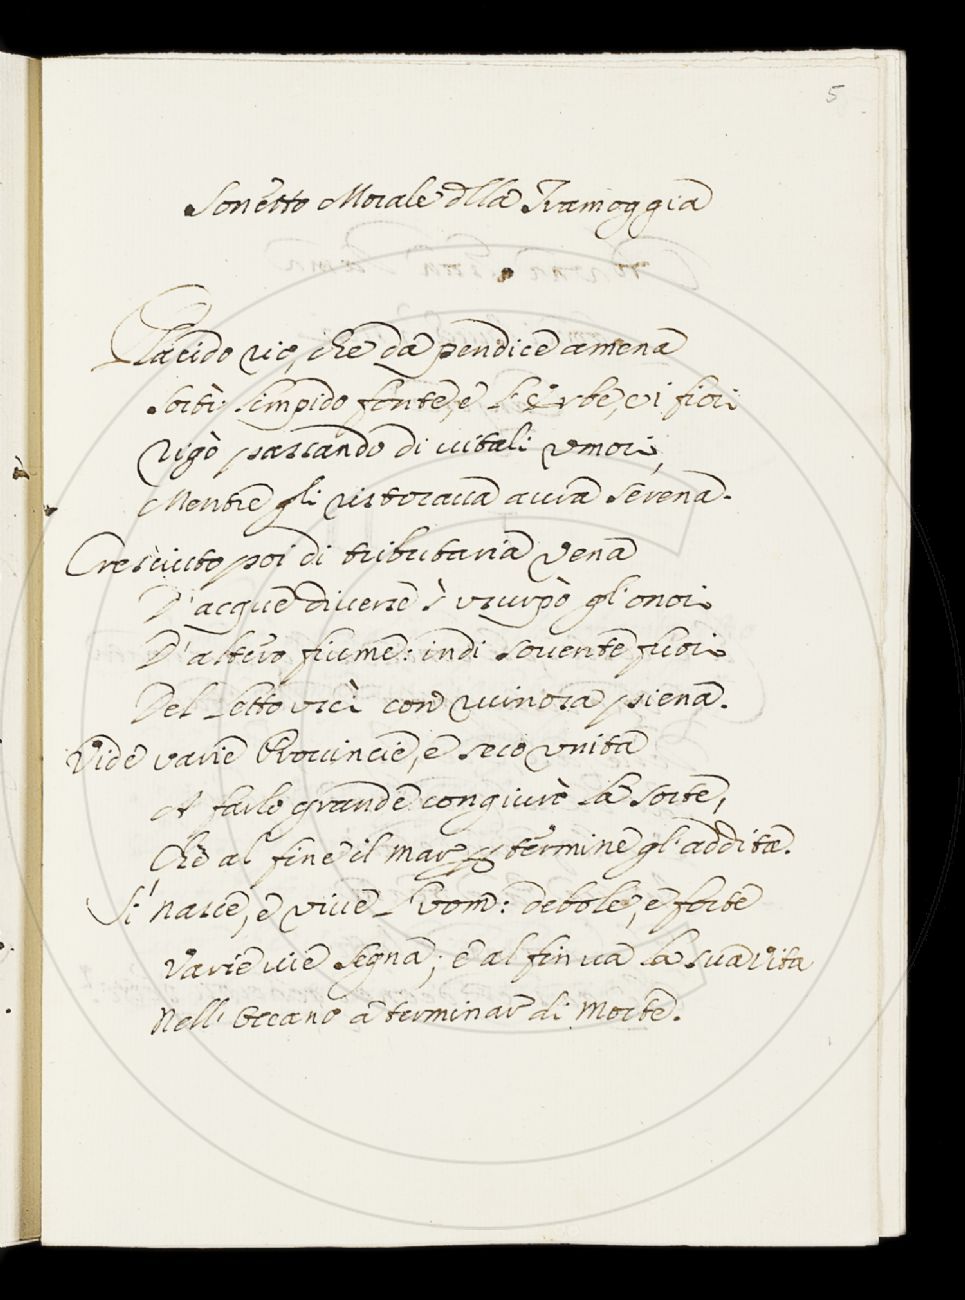 5
Sonetto Morale dlla Tramoggia
Placido rio, che da pendice amena
Sortì limpido fonte, e l'erbe, e i fiori
Rigò passando di vitali umori,
Mentre gli ristorava aura serena.
Cresciuto poi di tributaria vena
D'acque diverse s'usurpò gl'onori
D'altero fiume: indi sovente fuori
Del letto uscì con ruinosa piena.
Vide varie Provincie, e seco unita
A farlo grande congiurò la sorte,
Chè al fine il mar per termine gl'addita.
Sì nasce, e vive l'uom: debole, e forte
Varie vie segna; e al fin va la sua vita
Nell'Occano a terminar di Morte.